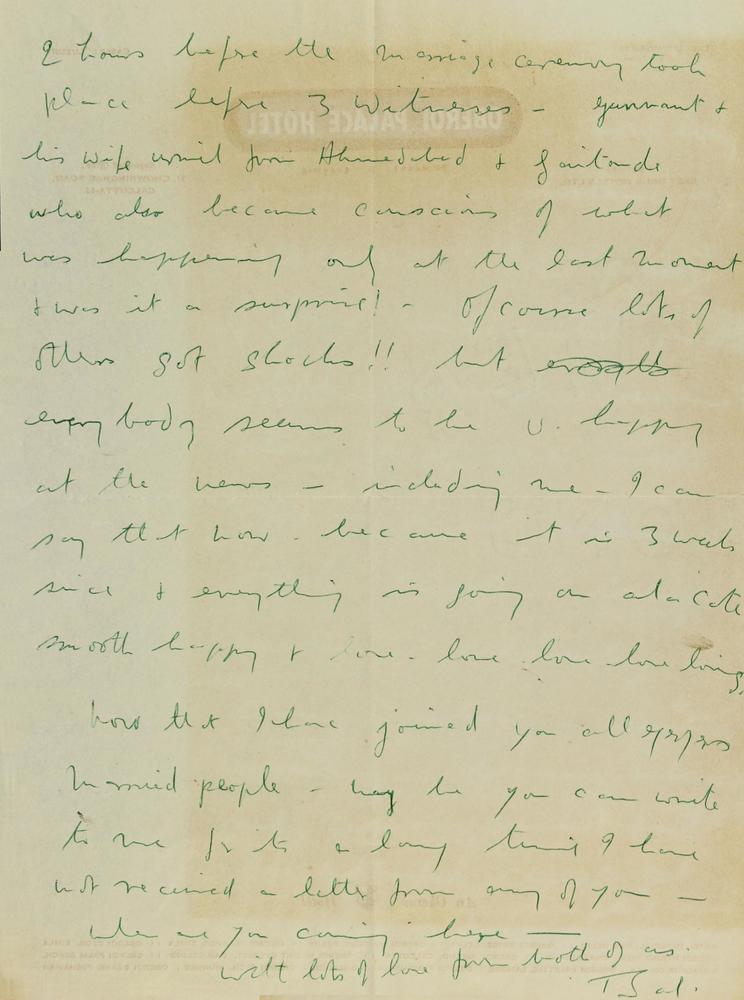 2 hours before the marriage ceremony took
place before 3 witnesses -
his wife Urmil from Ahmedabad & Gaitonde
who also became conscious of what
was happening only at the last moment
& was it a surprise! - Of course lots of
others got shocks!! but
everybody seems to be v. happy
at the news - including me - I can
say that now - because it is 3 weeks
since & everything is going on
smooth happy & love - love love love
now that I have joined you all
married people - may be you can write
to me for its a long time I have
not received a letter from any of you -
when are you coming here —
with lots of love from both of us.
OBEROI PALACE HOTEL